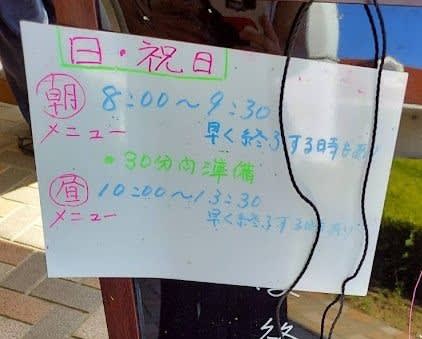 日・祝日
朝 8:00〜9:30
メニュー 早く終了する時もあり
*30分内準備
昼 10:00〜13:30
メニュー 早く終了する時もあり